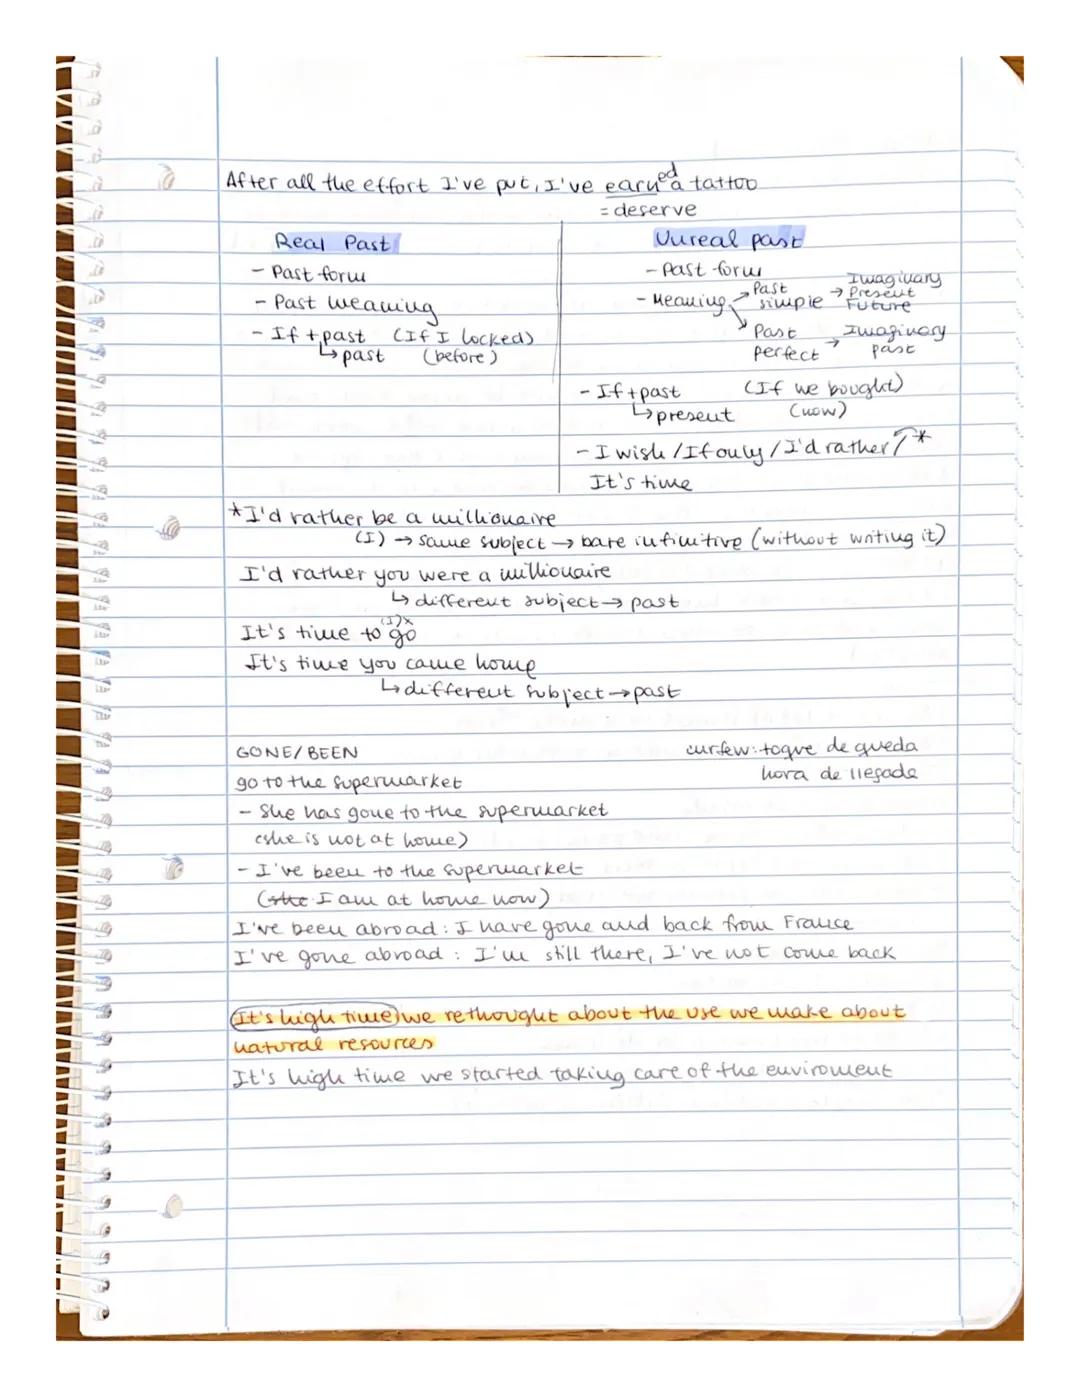 After all the effort I've put, I've earned a tattoo
= deserve
Real Past
- Past form
- Past meaning
- If + past (If I locked)
↳ past (before)
Unreal past
- Past form
- Meaning → Past simple → Imaginary Present Future
↘ Past perfect → Imaginary past
- If + past (If we bought)
↳ present (now)
- I wish / If only / I'd rather / *
It's time
*I'd rather be a millionaire
(I) → same subject → bare infinitive (without writing it)
I'd rather you were a millionaire
↳ different subject → past
(I)x
It's time to go
It's time you came home
↳ different subject → past
GONE/BEEN
curfew: toque de queda
hora de llegada
go to the supermarket
- She has gone to the supermarket
(she is not at home)
- I've been to the supermarket
(she I am at home now)
I've been abroad: I have gone and back from France
I've gone abroad: I'm still there, I've not come back
It's high time we rethought about the use we make about
natural resources
It's high time we started taking care of the enviroment